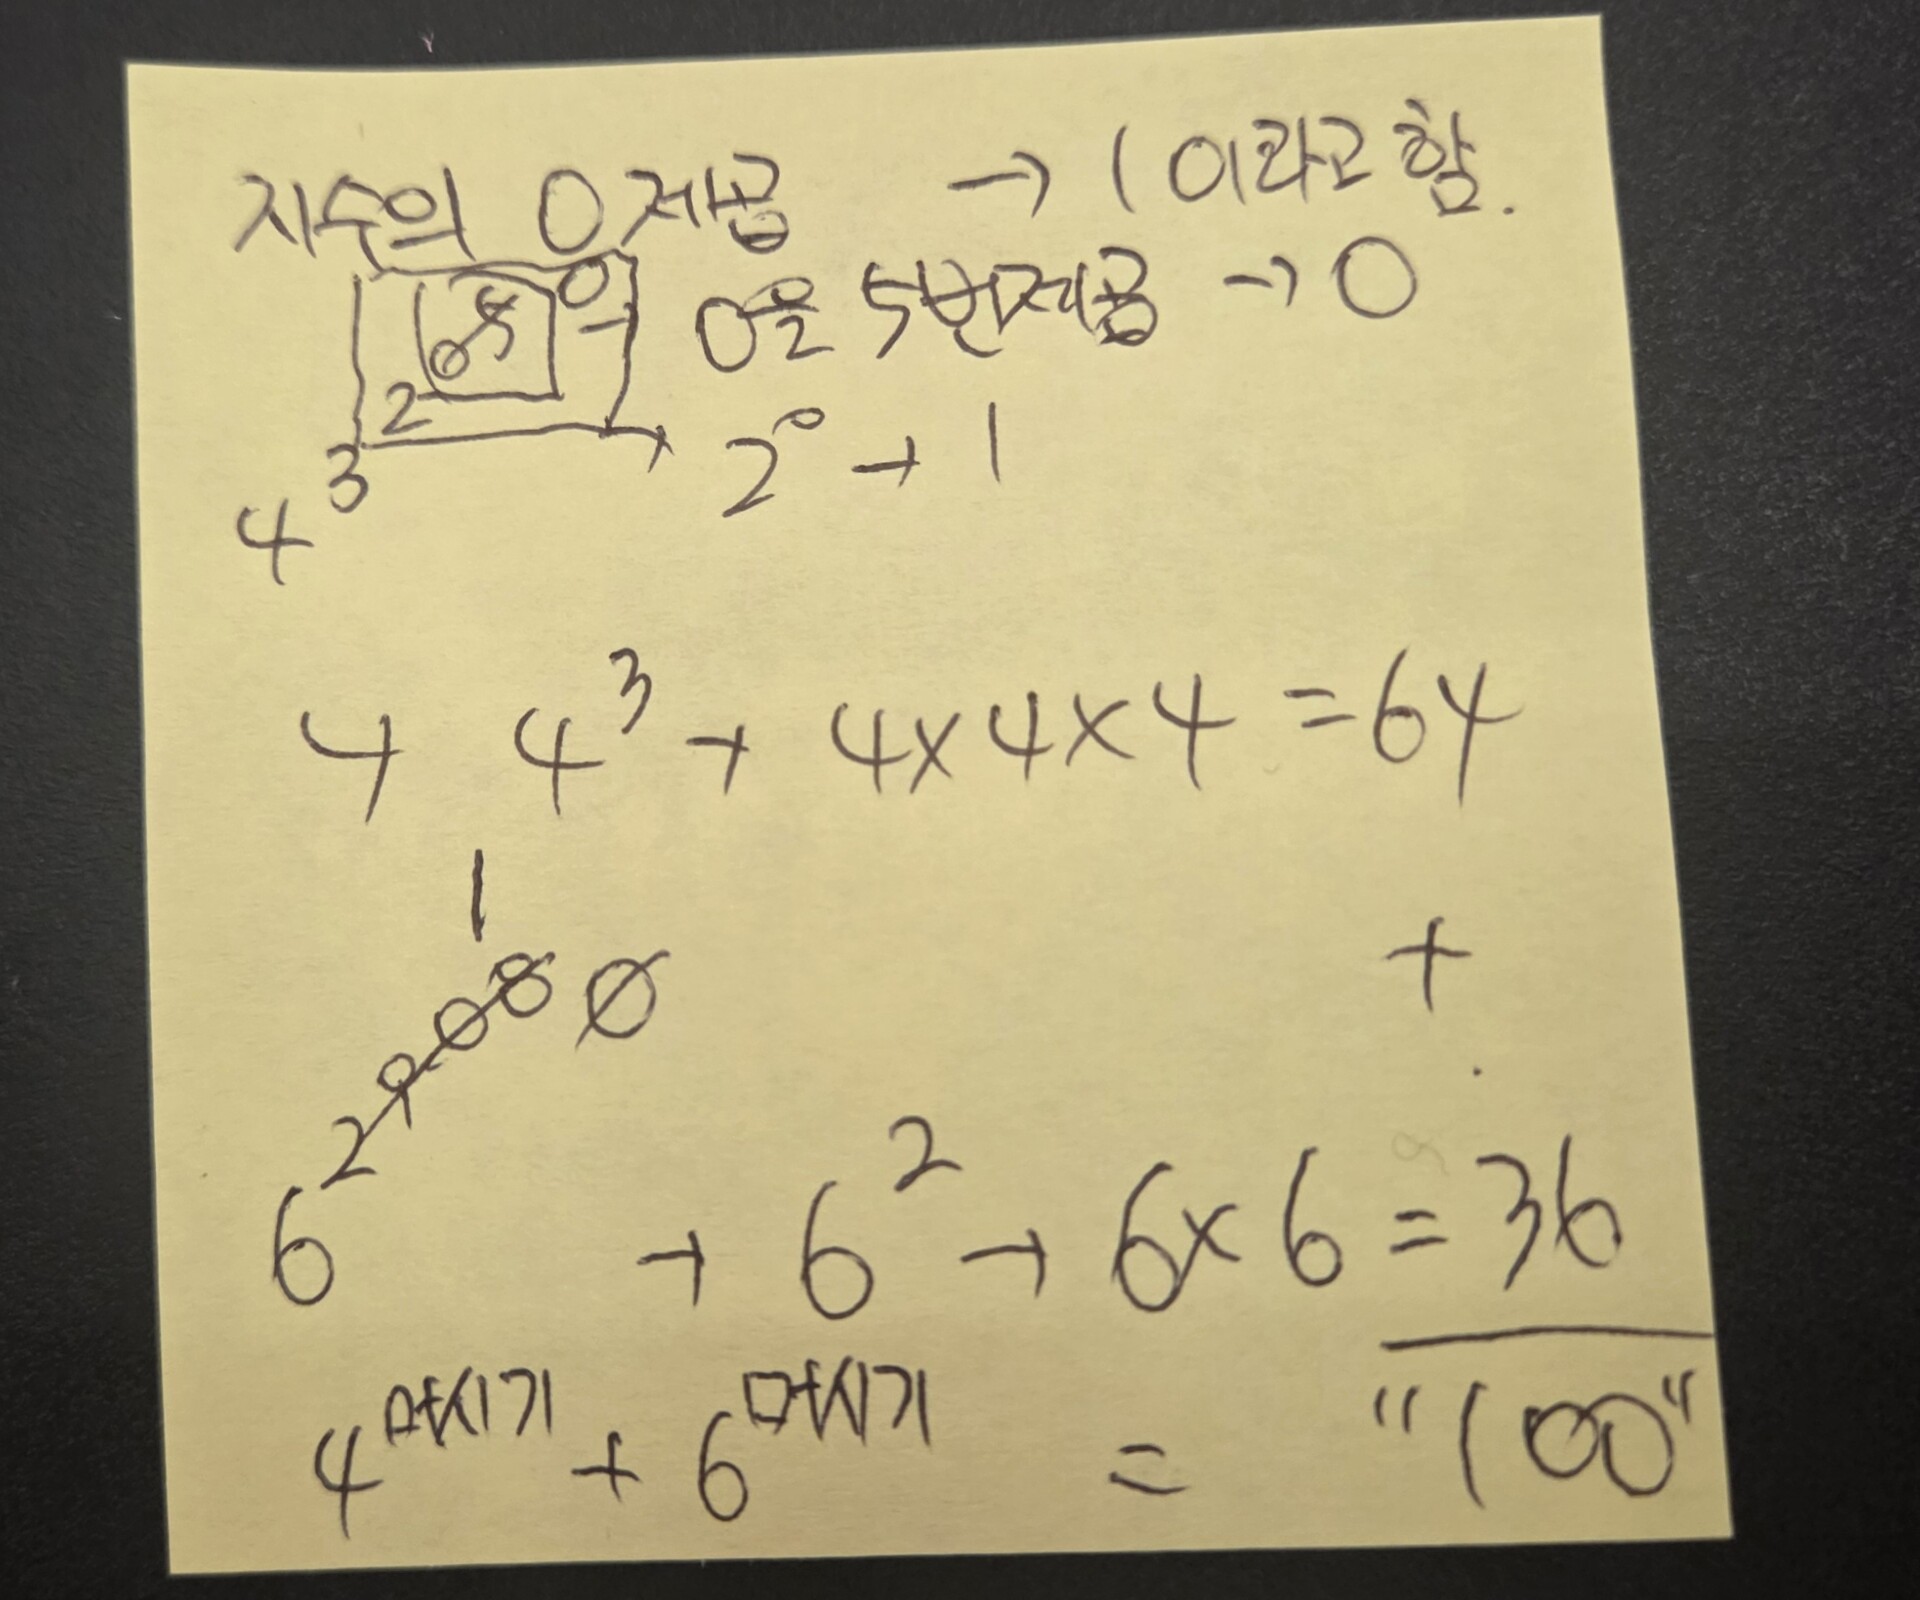 지수의 0제곱 → 1 이라고 함.
4^3^2^0^5^0의 0을 5번제곱 → 0
2⁰ → 1
4 4³ → 4×4×4 = 64
1
+
6² → 6² → 6×6 = 36
4^머시기 + 6^머시기 = "100"